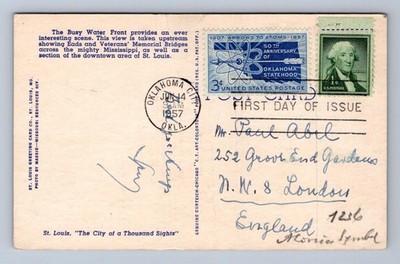 The Busy Water Front provides an ever
interesting scene. This view is taken upstream
showing Eads and Veterans' Memorial Bridges
across the mighty Mississippi, as well as a
section of the downtown area of St. Louis.
1907 ARROWS TO ATOMS 1957
50TH
ANNIVERSARY
OF
OKLAHOMA
STATEHOOD
3¢ UNITED STATES POSTAGE
1¢
U.S. POSTAGE
OKLAHOMA CITY
JUN 14
AM
1957
OKLA.
FIRST DAY OF ISSUE
Mr. Paul Abel
252 Grove End Gardens
N.W. 8 London
England
1256
ST. LOUIS GREETING CARD CO., ST. LOUIS, MO.
St. Louis, "The City of a Thousand Sights"